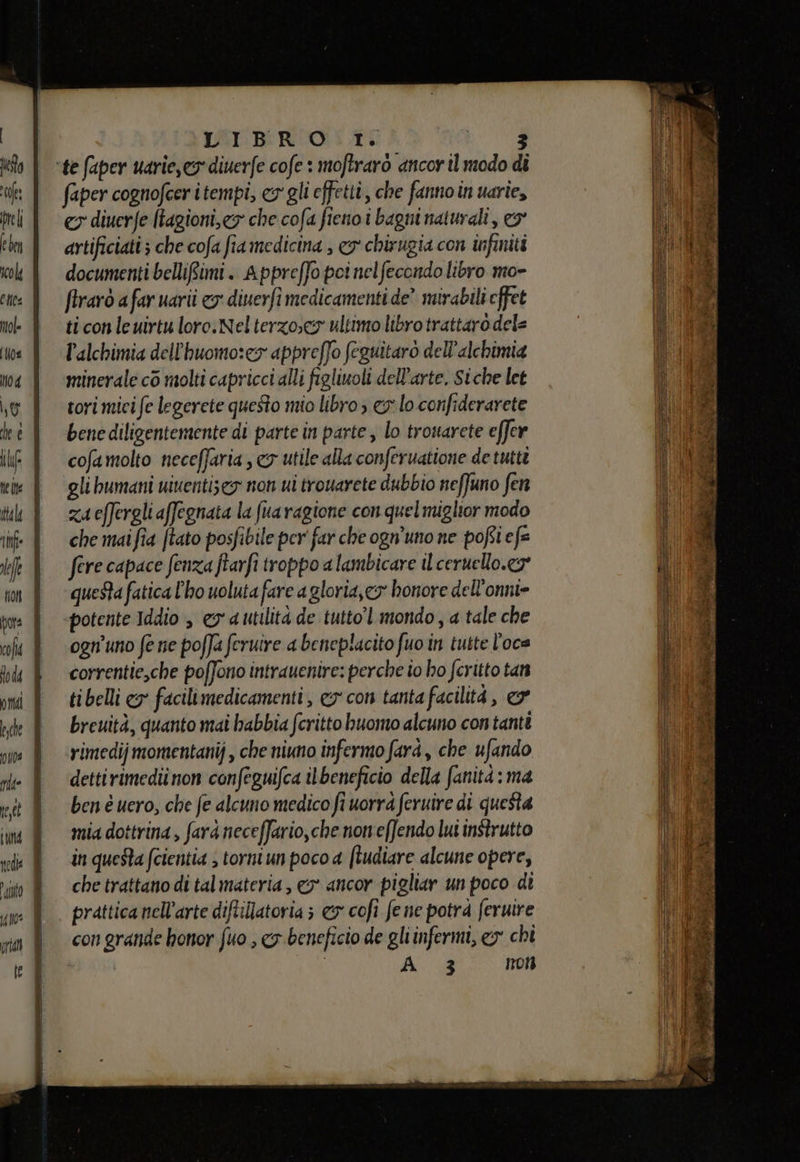 LIBRO I. 3
te ſaper uarie, & diuerſe coſe: moſtrarò ancor il modo di
ſaper cognoſcer i tempi, & gli effetti, che fanno in uarie,
& diuerſe ſtagioni, & che coſa ſieno i bagni naturali, &
artificiati; che coſa ſia medicina, & chirugia con infiniti
documenti belliſſimi. Appreſſo poi nel ſecondo libro mo-
ſtrarò a far uarii & diuerſi medicamenti de' mirabili effet
ti con le uirtu loro. Nel terzo, & ultimo libro trattarò del=
l'alchimia dell'huomo: & appreſſo ſeguitarò dell'alchimia
minerale cõ molti capricci alli figliuoli dell'arte. Si che let
tori miei ſe legerete queſto mio libro, & lo conſiderarete
bene diligentemente di parte in parte, lo trouarete eſſer
coſa molto neceſſaria, & utile alla conſeruatione de tutti
gli humani uiuenti; & non ui trouarete dubbio neſſuno ſen
za eſſergli aſſegnata la ſua ragione con quel miglior modo
che mai ſia ſtato posſibile per far che ogn'uno ne poſſi eſ=
ſere capace ſenza ſtarſi troppo a lambicare il ceruello. &
queſta fatica l'ho uoluta fare a gloria, & honore dell'onni-
potente Iddio, & a utilità de tutto'l mondo, a tale che
ogn'uno ſe ne poſſa ſeruire a beneplacito ſuo in tutte l'oc=
correntie, che poſſono intrauenire: perche io ho ſcritto tan
ti belli & facili medicamenti, & con tanta facilità, &
breuità, quanto mai habbia ſcritto huomo alcuno con tanti
rimedij momentanij, che niuno infermo ſarà, che uſando
detti rimedii non conſeguiſca il beneficio della ſanità: ma
ben è uero, che ſe alcuno medico ſi uorrà ſeruire di queſta
mia dottrina, ſarà neceſſario, che non eſſendo lui inſtrutto
in queſta ſcientia, torni un poco a ſtudiare alcune opere,
che trattano di tal materia, & ancor pigliar un poco di
prattica nell'arte diſtillatoria; & coſi ſe ne potrà ſeruire
con grande honor ſuo, & beneficio de gli infermi, & chi
A 3 non